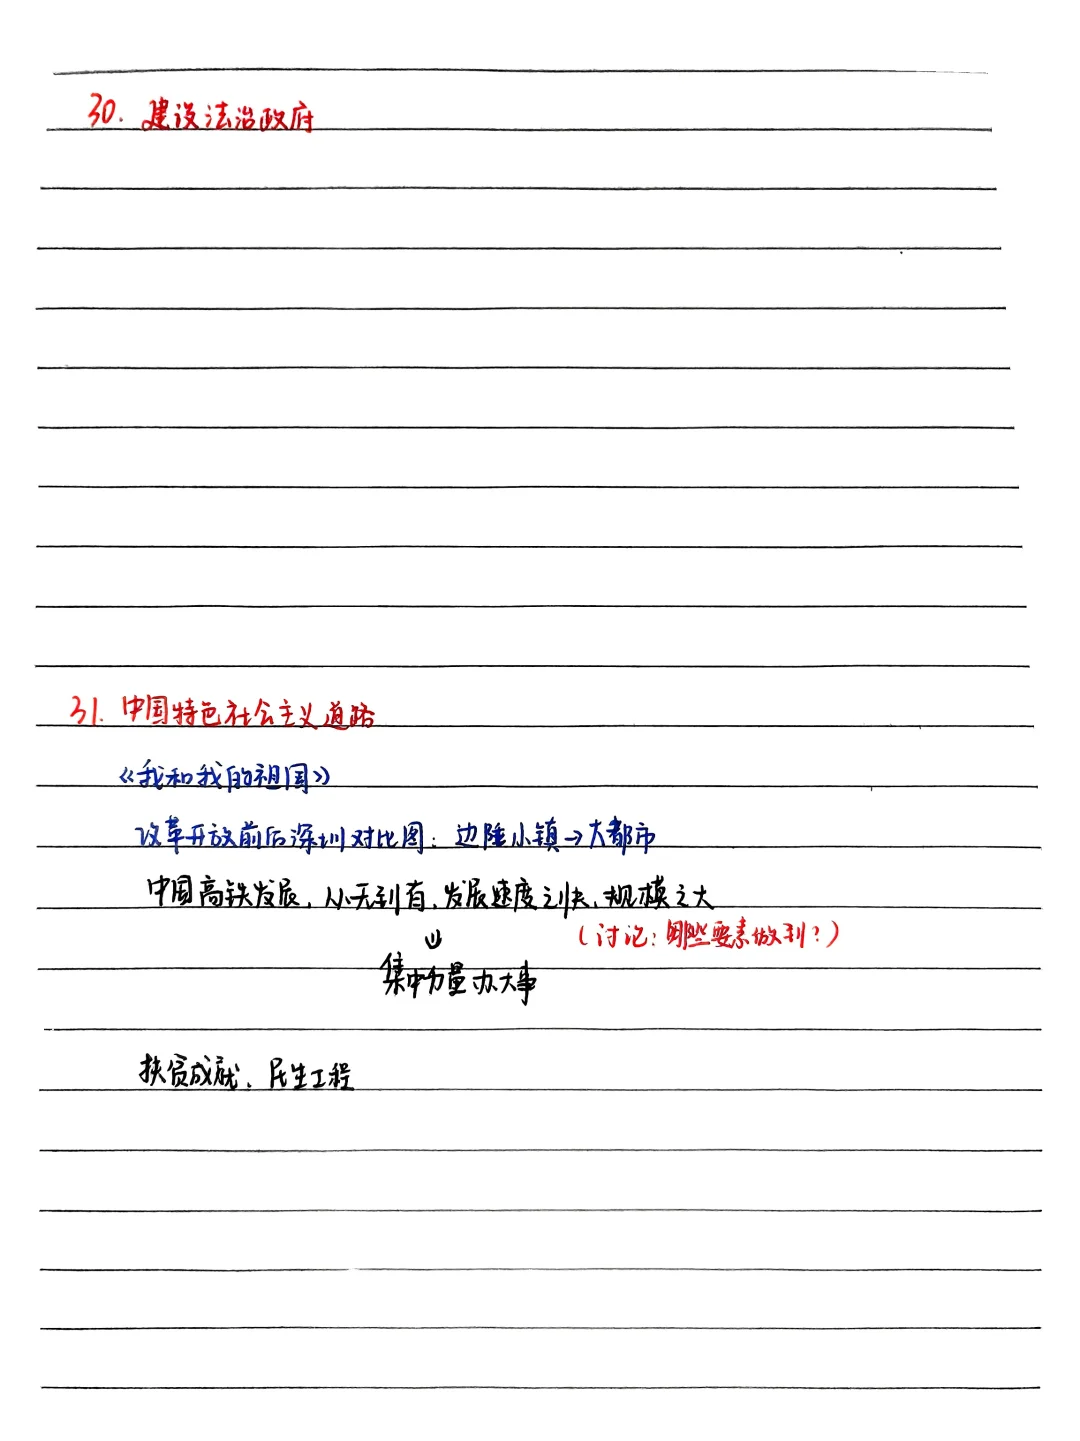 30. 建设法治政府
31. 中国特色社会主义道路
《我和我的祖国》
改革开放前后深圳对比图：边陲小镇→大都市
中国高铁发展，从无到有，发展速度之快、规模之大
（讨论：哪些要素做到？）
⇓
集中力量办大事
扶贫成就、民生工程